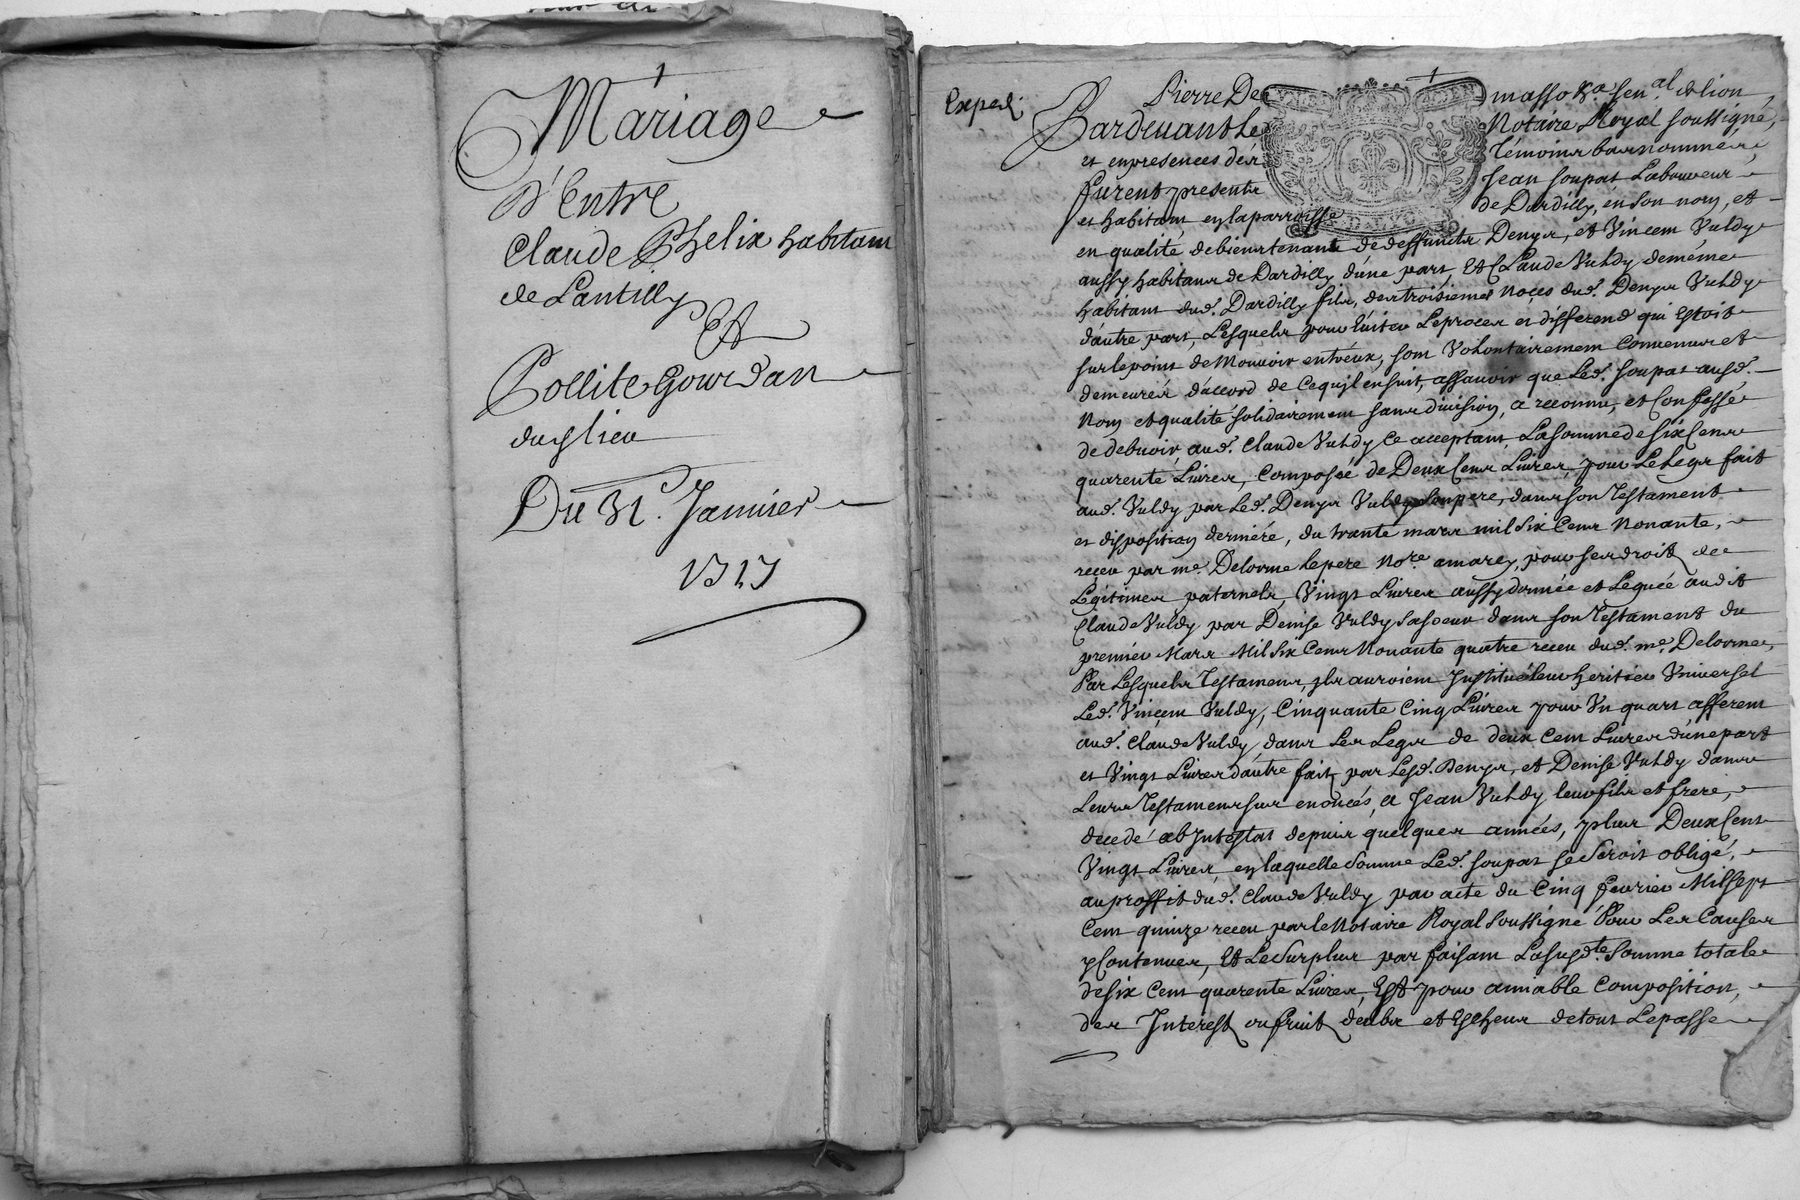 Mariage
d'Entre
Claude Phelix habitant
de Lantilly
Et
Pollite Gourdan
dud lieu
Du VI.e Janvier
1717
Exped.
Pierre De masso sen.al de lion
Pardevant Le Notaire Royal soussigné,
et en presences des Témoins bas nommés,
furent presents Jean soupat Laboureur
et habitant en la parroisse de Dardilly, en son nom, et
en qualité de bienstenant de deffuncts Denys, et Vincem Vuldy
aussy habitans de Dardilly d'une part, Et Claude Vuldy de méme
habitant dud. Dardilly fils, des troisiemes noces dud. Denys Vuldy
d'autre part, Lesquels pour Eviter Le proces et different qui Estoit
sur le point de Mouvoir entr'eux, sont Volontairement Convenus et
demeurés d'accord de ce qu'il ensuit, assavoir que Led. soupat aud.
Nom et qualité solidairement sans division, a reconnu, et Confessé
de debvoir aud. Claude Vuldy Ce acceptant La somme de Six Cens
quarente Livres, Composée de Deux Cens Livres, pour Le Legs fait
aud. Vuldy par Led. Denys Vuldy Son pere, dans son Testament
et disposition derniére, du trante mars mil Six Cens Nonante,
reçeu par me. Delorme le pere No.re a marcy, pour ses droits de
Legitimes paternels, Vingt Livres aussy donnée et Leguée audit
Claude Vuldy par Denise Vuldy Sa soeur dans son Testament du
premier Mars Mil Six Cens Nonante quatre receu dud. me. Delorme,
Par Lesquels Testamens, ils auroient Institué leur heritier Universel
Led. Vinçem Vuldy, Cinquante Cinq Livres pour Un quart afferent
aud. Claude Vuldy, dans Les Legs de deux Cent Livres d'une part
et Vingt Livres d'autre faits par Lesd. Denys, et Denise Vuldy dans
Leurs Testamens sus enoncés, a Jean Vuldy leur fils et frere,
decedé ab Intestat depuis quelques années, plus Deux Cent
Vingt Livres, en laquelle Somme Led. soupat se Seroit obligé,
au proffit dud. Claude Vuldy par acte du Cinq fevrier Mil Sept
Cent quinze receu par le Notaire Royal soussigné Pour Les Causes
y Contenues, Et Le Surplus par faisant La susd.te Somme totale
de six Cent quarente Livres, Est pour amiable Composition,
des Interest ou fruits deubs et Escheus de tout Le passé